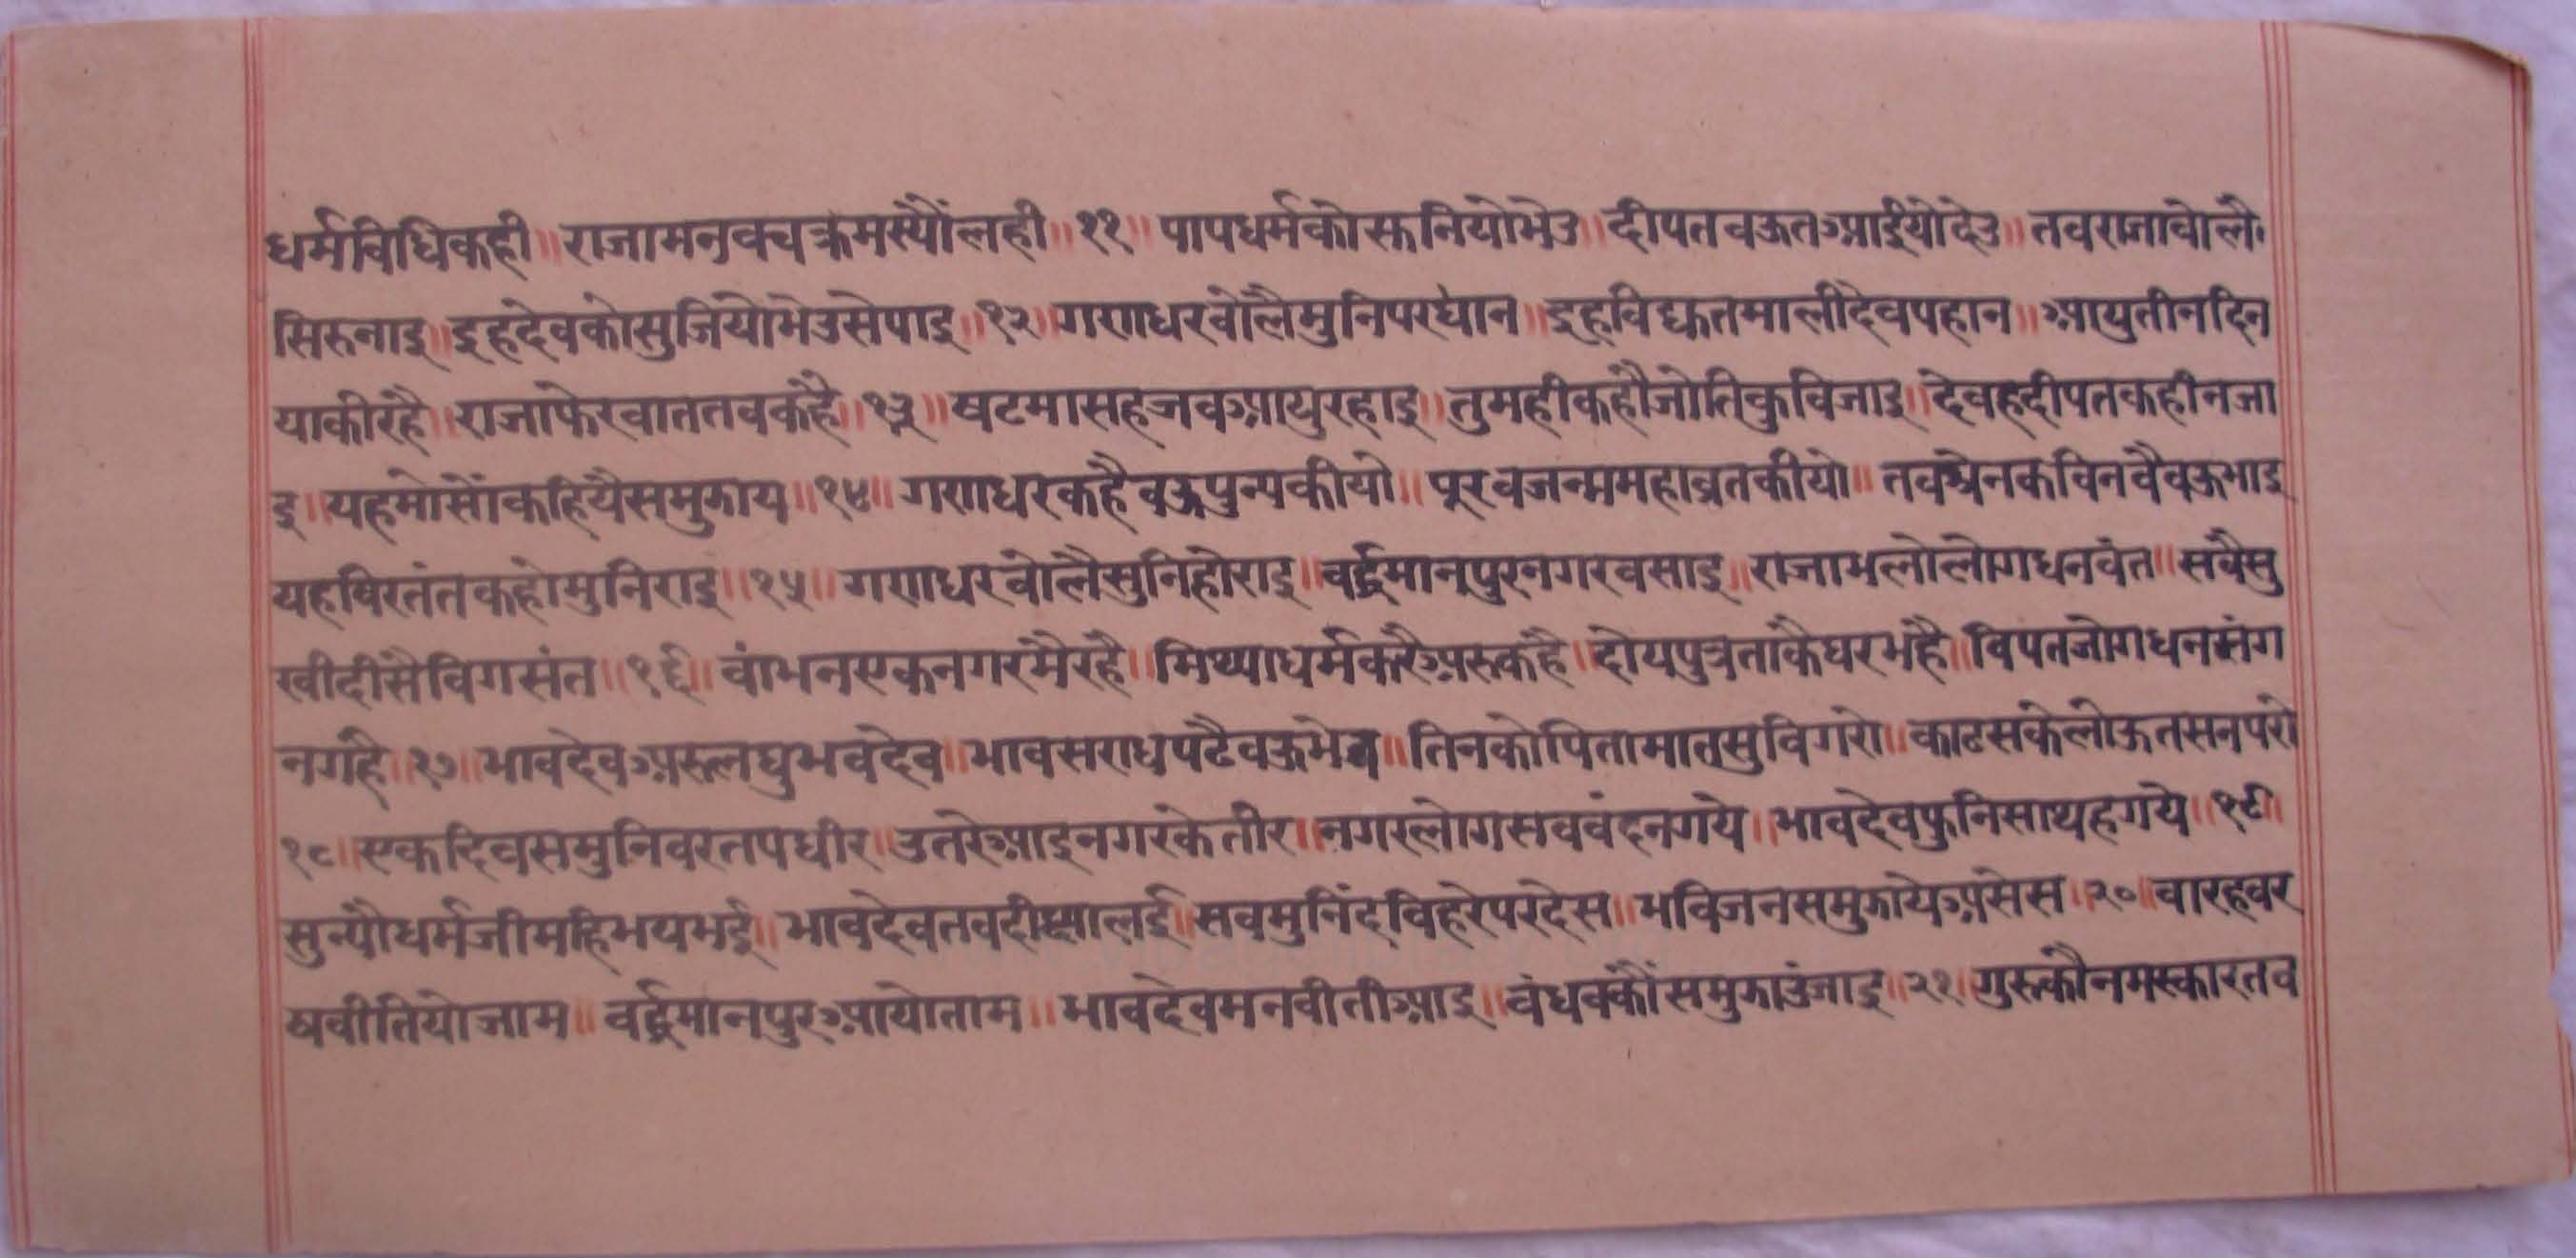 धर्मविधिकही॥राजामनवचक्रमस्यौंलही॥११॥पापधर्मकोसुनियोभेउ॥दीपतवऊतआईयोदेउ॥तवराजावोलै
सिरुनाइ॥इहदेवकोसुजियोभेउसेपाइ॥१२॥गणधरवोलैमुनिपरधान॥इहविद्युतमालीदेवपहान॥आयुतीनदिन
याकीरहै॥राजाफेरवाततवकहै॥१३॥षटमासहजवआयुरहाइ॥तुमहीकहौजोतिकुविजाइ॥देवहदीपतकहीनजा
इ॥यहमोसौंकहियैसमुझाय॥१४॥गणधरकहैवऊपुन्यकीयो॥पूरवजन्ममहाव्रतकीयो॥तवश्रेनकविनवैवऊभाइ
यहविरतंतकहोमुनिराइ॥१५॥गणधरवोलैसुनिहोराइ॥वर्द्धमानपुरनगरवसाइ॥राजाभलोलोगधनवंत॥सवैसु
खीदीसैविगसंत॥१६॥वांभनएकनगरमैरहै॥मिथ्याधर्मकरैअरुकहै॥दोयपुत्रताकैघरभहै॥विपतजोगधनसंग
नगहै॥१७॥भावदेवअरुलघुभवदेव॥भावसराधपढैवऊभेव॥तिनकोपितामातसुविगरो॥काटसकेलोऊतसनपरो
१८॥एकदिवसमुनिवरतपधीर॥उतरेआइनगरकेतीर॥नगरलोगसववंदनगये॥भावदेवफुनिसाथहगये॥१९॥
सुन्यौधर्मजीमहिभयभई॥भावदेवतवदीक्षालई॥सवमुनिंदविहरेपरदेस॥भविजनसमुझायेअसेस॥२०॥वारहवर
षवीतियोजाम॥वर्द्धमानपुरआयोताम॥भावदेवमनवीतीआइ॥वंधवकौंसमुझाउंजाइ॥२१॥गुरुकौनमस्कारतव